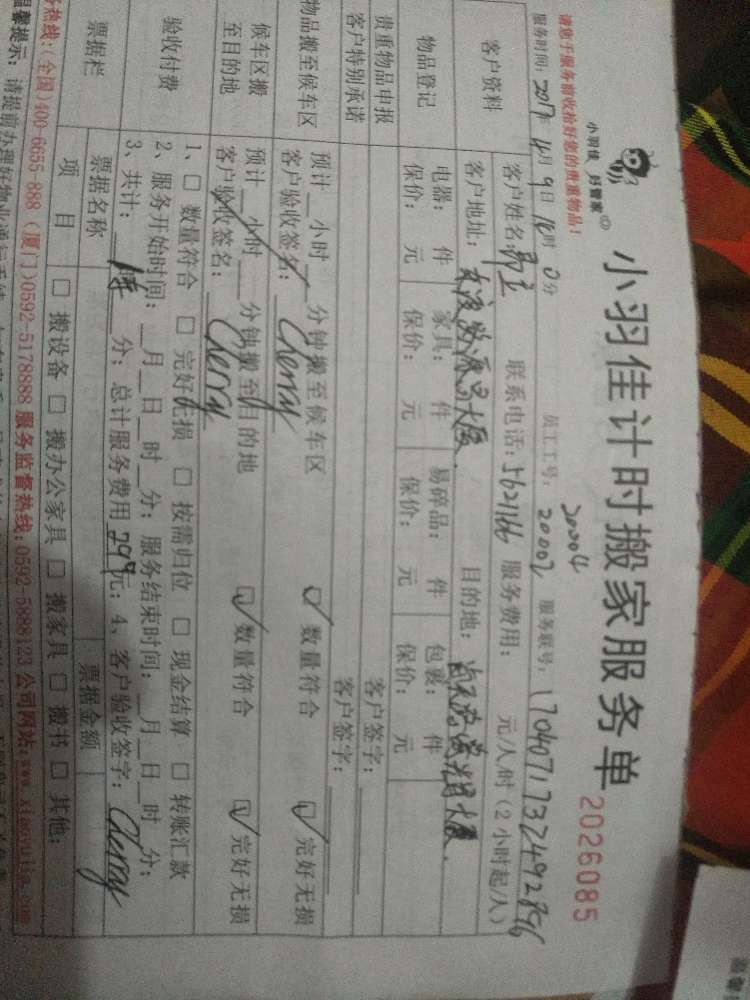 小羽佳计时搬家服务单
2026085
小羽佳 好管家
请您于服务前收拾好您的贵重物品!
服务时间: 2017年4月9日16时0分 员工工号: 20002 20004 服务联号: 1704071732492896
客户资料
客户姓名: 联系电话: 5621166 服务费用: 元/人/时(2小时起/人)
客户地址: 目的地:
物品登记
电器: 件 家具: 件 易碎品: 件 包裹: 件
保价: 元 保价: 元 保价: 元 保价: 元
贵重物品申报 客户签字:
客户特别承诺 客户签字:
物品搬至候车区
预计__小时__分钟搬至候车区 数量符合 完好无损
客户验收签名: Cherry
候车区搬至目的地
预计__小时__分钟搬至目的地 数量符合 完好无损
客户验收签名: Cherry
验收付费
1、□ 数量符合 □ 完好无损 □ 按需归位 □ 现金结算 □ 转账汇款
2、服务开始时间:__月__日__时__分; 服务结束时间:__月__日__时__分;
3、共计: 分; 总计服务费用 299元; 4、客户验收签字: Cherry
票据栏
票据名称 票据金额
项 目 □ 搬设备 □ 搬办公家具 □ 搬家具 □ 搬书 □ 其他:
务热线:(全国)400-6655-888 (厦门)0592-5178888 服务监督热线:0592-5888123 公司网站:www.xiaoyujia.com
温馨提示: 请提前办理好物业通行手续